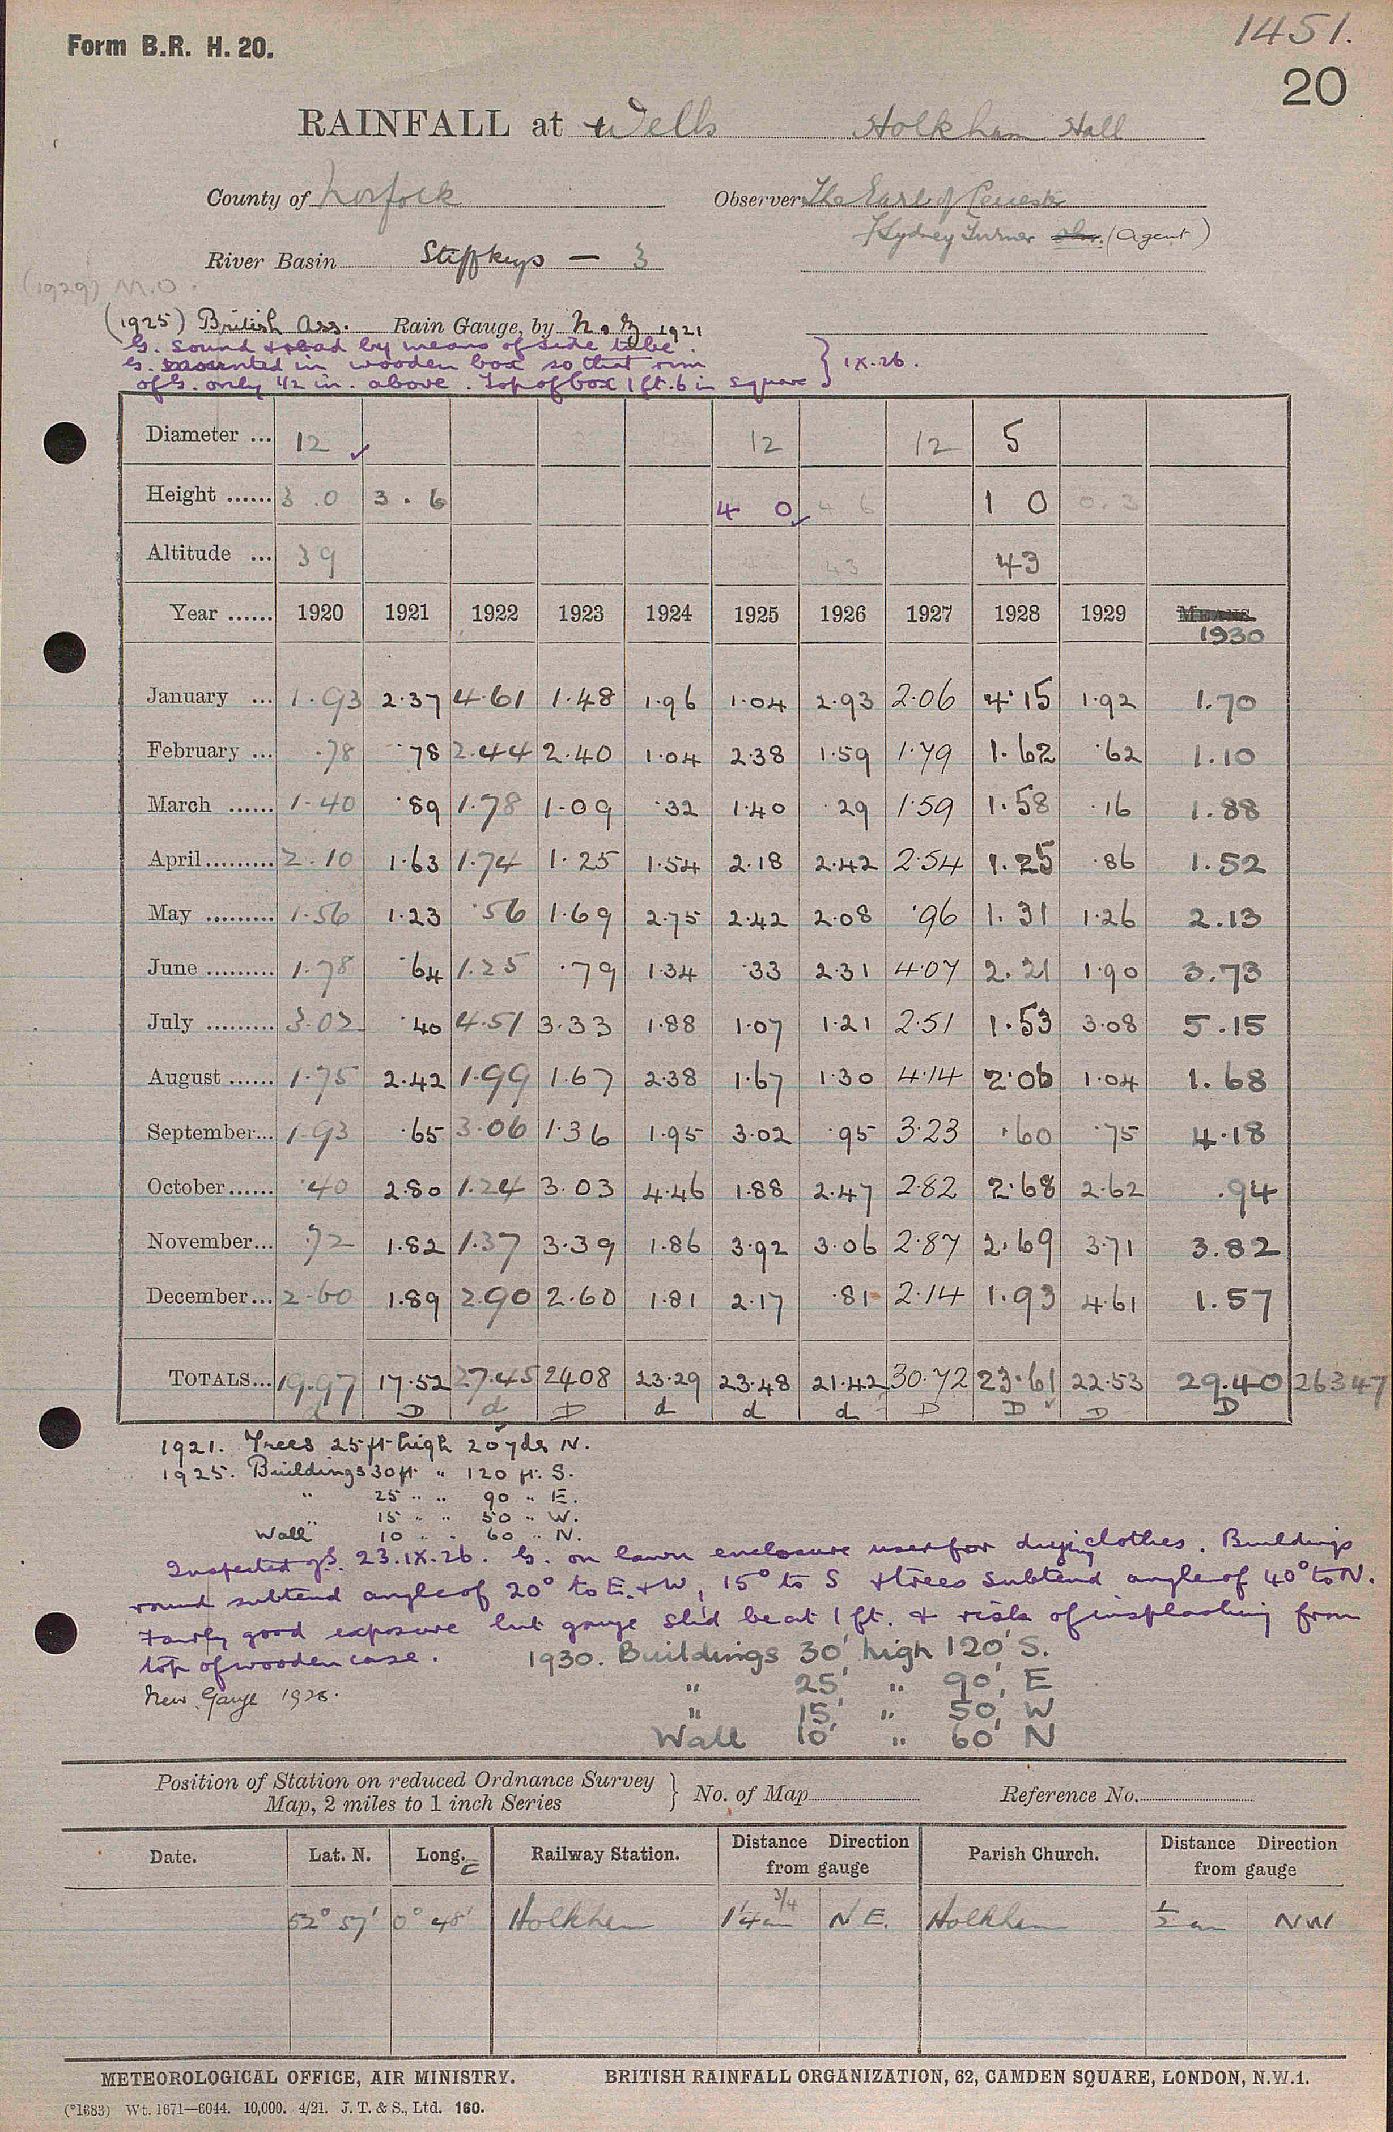 1451.
Form B.R. H. 20.
20
RAINFALL at Wells Holkham Hall
County of Norfolk Observer The Earl of Leicester
Sydney Turner (Agent)
River Basin Stiffkey — 3
(1929) M.O.
(1925) British Ass. Rain Gauge, by N. & Z 1921
G. sound & read by means of side tube.
G. mounted in wooden box so that rim } IX.26.
of G. only 1/2 in. above. Top of box 1 ft. 6 in square
Diameter ... 12 12 12 5
Height ...... 3.0 3.6 4 0 4 6 1 0 0.3
Altitude ... 39 43 43
Year ...... 1920 1921 1922 1923 1924 1925 1926 1927 1928 1929 1930
January ... 1.93 2.37 4.61 1.48 1.96 1.04 2.93 2.06 4.15 1.92 1.70
February ... .78 .78 2.44 2.40 1.04 2.38 1.59 1.79 1.62 .62 1.10
March ...... 1.40 .89 1.78 1.09 .32 1.40 .29 1.59 1.58 .16 1.88
April ......... 2.10 1.63 1.74 1.25 1.54 2.18 2.42 2.54 1.25 .86 1.52
May ......... 1.56 1.23 .56 1.69 2.75 2.42 2.08 .96 1.31 1.26 2.13
June ......... 1.78 .64 1.25 .79 1.34 .33 2.31 4.07 2.21 1.90 3.73
July ......... 3.02 .40 4.51 3.33 1.88 1.07 1.21 2.51 1.53 3.08 5.15
August ...... 1.75 2.42 1.99 1.67 2.38 1.67 1.30 4.14 2.06 1.04 1.68
September... 1.93 .65 3.06 1.36 1.95 3.02 .95 3.23 .60 .75 4.18
October...... .40 2.80 1.24 3.03 4.46 1.88 2.47 2.82 2.68 2.62 .94
November... .72 1.82 1.37 3.39 1.86 3.92 3.06 2.87 2.69 3.71 3.82
December... 2.60 1.89 2.90 2.60 1.81 2.17 .81 2.14 1.93 4.61 1.57
TOTALS... 19.97 17.52 27.45 2408 23.29 23.48 21.42 30.72 23.61 22.53 29.40 26347
d D d D d d d D D D D
1921. Trees 25 ft high 20 yds N.
1925. Buildings 30 ft. " 120 ft. S.
" 25 " " 90 " E.
" 15 " " 50 " W.
Wall 10 " " 60 " N.
Inspected 23.IX.26. G. on lawn enclosure used for drying clothes. Buildings
round subtend angle of 20° to E. & W, 15° to S & trees subtend angle of 40° to N.
Fairly good exposure but gauge sh'd be at 1 ft. & risk of insplashing from
top of wooden case. 1930. Buildings 30' high 120' S.
New Gauge 1928. " 25' " 90' E
" 15' " 50' W
Wall 10' " 60' N
Position of Station on reduced Ordnance Survey
Map, 2 miles to 1 inch Series } No. of Map Reference No.
Date. Lat. N. Long. E Railway Station. Distance Direction from gauge Parish Church. Distance Direction from gauge
52° 57' 0° 48' Holkham 1 1/4 3/4 m N E. Holkham 1/2 m NW
METEOROLOGICAL OFFICE, AIR MINISTRY. BRITISH RAINFALL ORGANIZATION, 62, CAMDEN SQUARE, LONDON, N.W.1.
(*1683) Wt. 1671—6044. 10,000. 4/21. J. T. & S., Ltd. 160.